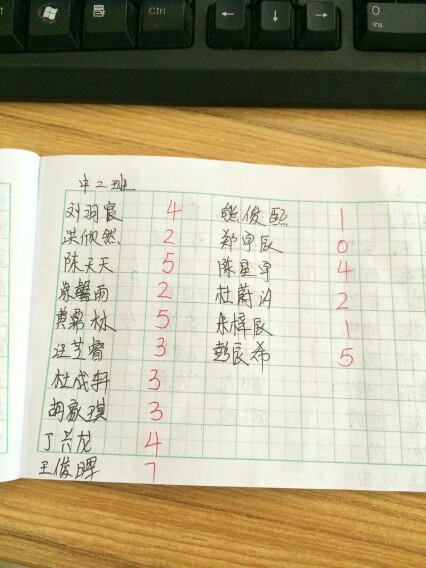 Ctrl
←
→
0
Ins
中二班
刘羽宸 4 熊俊熙 1
洪欣然 2 郑宇辰 0
陈天天 5 陈星宇 4
馨雨 2 杜蔚汐 2
黄梦林 5 朱梓辰 1
汪芝睿 3 彭辰希 5
杜成轩 3
胡家琪 3
丁兴龙 4
王俊晖 7